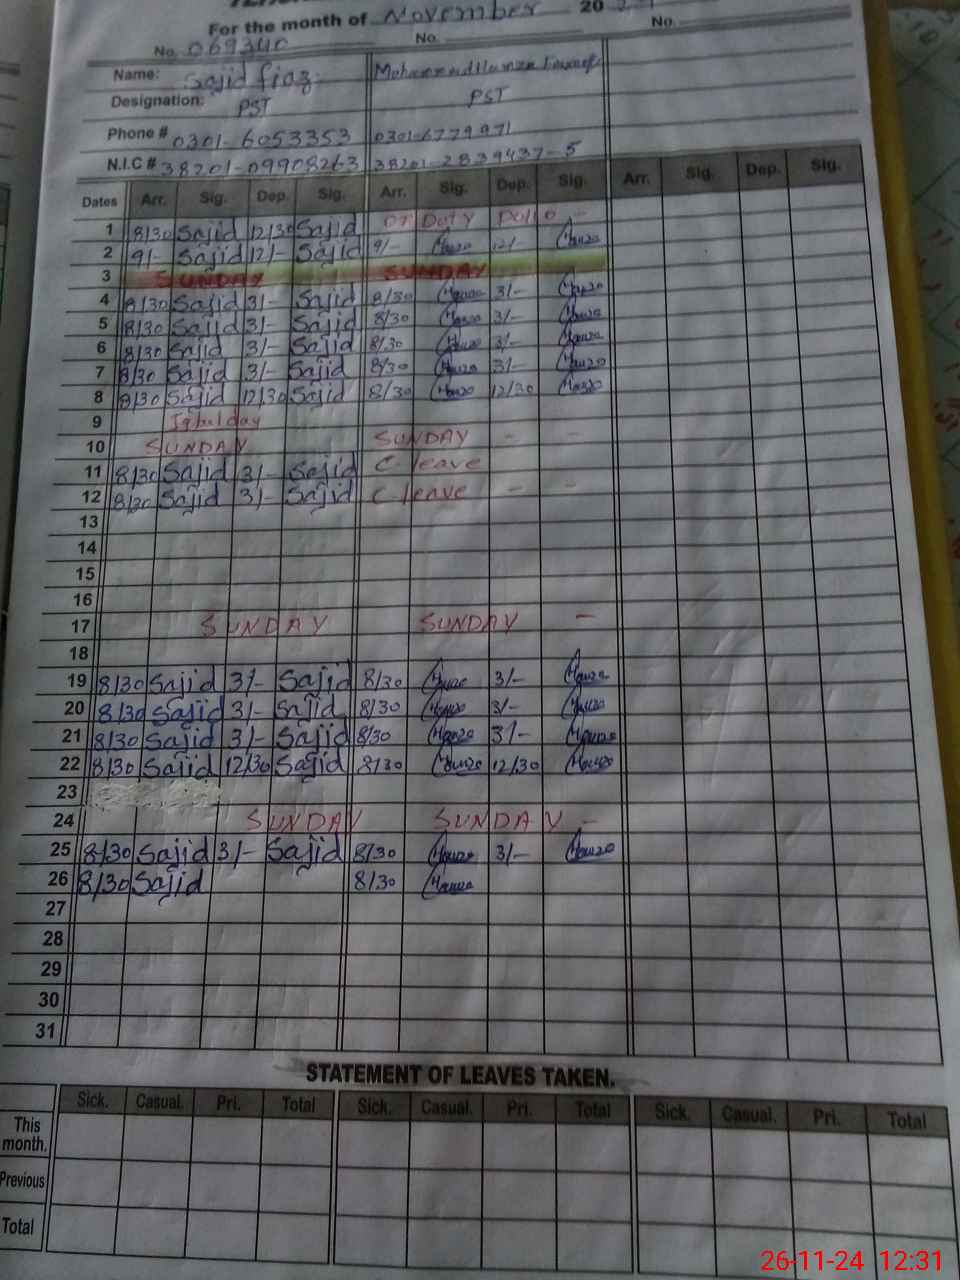 For the month of November 20
No. 069340 No. No.
Name: Sajid fiaz Mohammad Hamza
Designation: PST PST
Phone # 0301-6053353 0301-6779971
N.I.C # 38201-09908263 38201-2839437-5
Dates Arr. Sig. Dep. Sig. Arr. Sig. Dep. Sig. Arr. Sig. Dep. Sig.
1 8/30 Sajid 12/30 Sajid Duty Polio -
2 9/- Sajid 12/- Sajid 9/- Hamza 12/- Hamza
3 SUNDAY SUNDAY
4 8/30 Sajid 3/- Sajid 8/30 Hamza 3/- Hamza
5 8/30 Sajid 3/- Sajid 8/30 Hamza 3/- Hamza
6 8/30 Sajid 3/- Sajid 8/30 Hamza 3/- Hamza
7 8/30 Sajid 3/- Sajid 8/30 Hamza 3/- Hamza
8 8/30 Sajid 12/30 Sajid 8/30 Hamza 12/30 Hamza
9 Iqbal day
10 SUNDAY SUNDAY - -
11 8/30 Sajid 3/- Sajid C. leave
12 8/30 Sajid 3/- Sajid C. leave - -
13
14
15
16
17 SUNDAY SUNDAY -
18
19 8/30 Sajid 3/- Sajid 8/30 Hamza 3/- Hamza
20 8/30 Sajid 3/- Sajid 8/30 Hamza 3/- Hamza
21 8/30 Sajid 3/- Sajid 8/30 Hamza 3/- Hamza
22 8/30 Sajid 12/30 Sajid 8/30 Hamza 12/30 Hamza
23
24 SUNDAY SUNDAY -
25 8/30 Sajid 3/- Sajid 8/30 Hamza 3/- Hamza
26 8/30 Sajid 8/30 Hamza
27
28
29
30
31
STATEMENT OF LEAVES TAKEN.
Sick. Casual. Pri. Total Sick. Casual. Pri. Total Sick. Casual. Pri. Total
This month.
Previous
Total
26-11-24 12:31